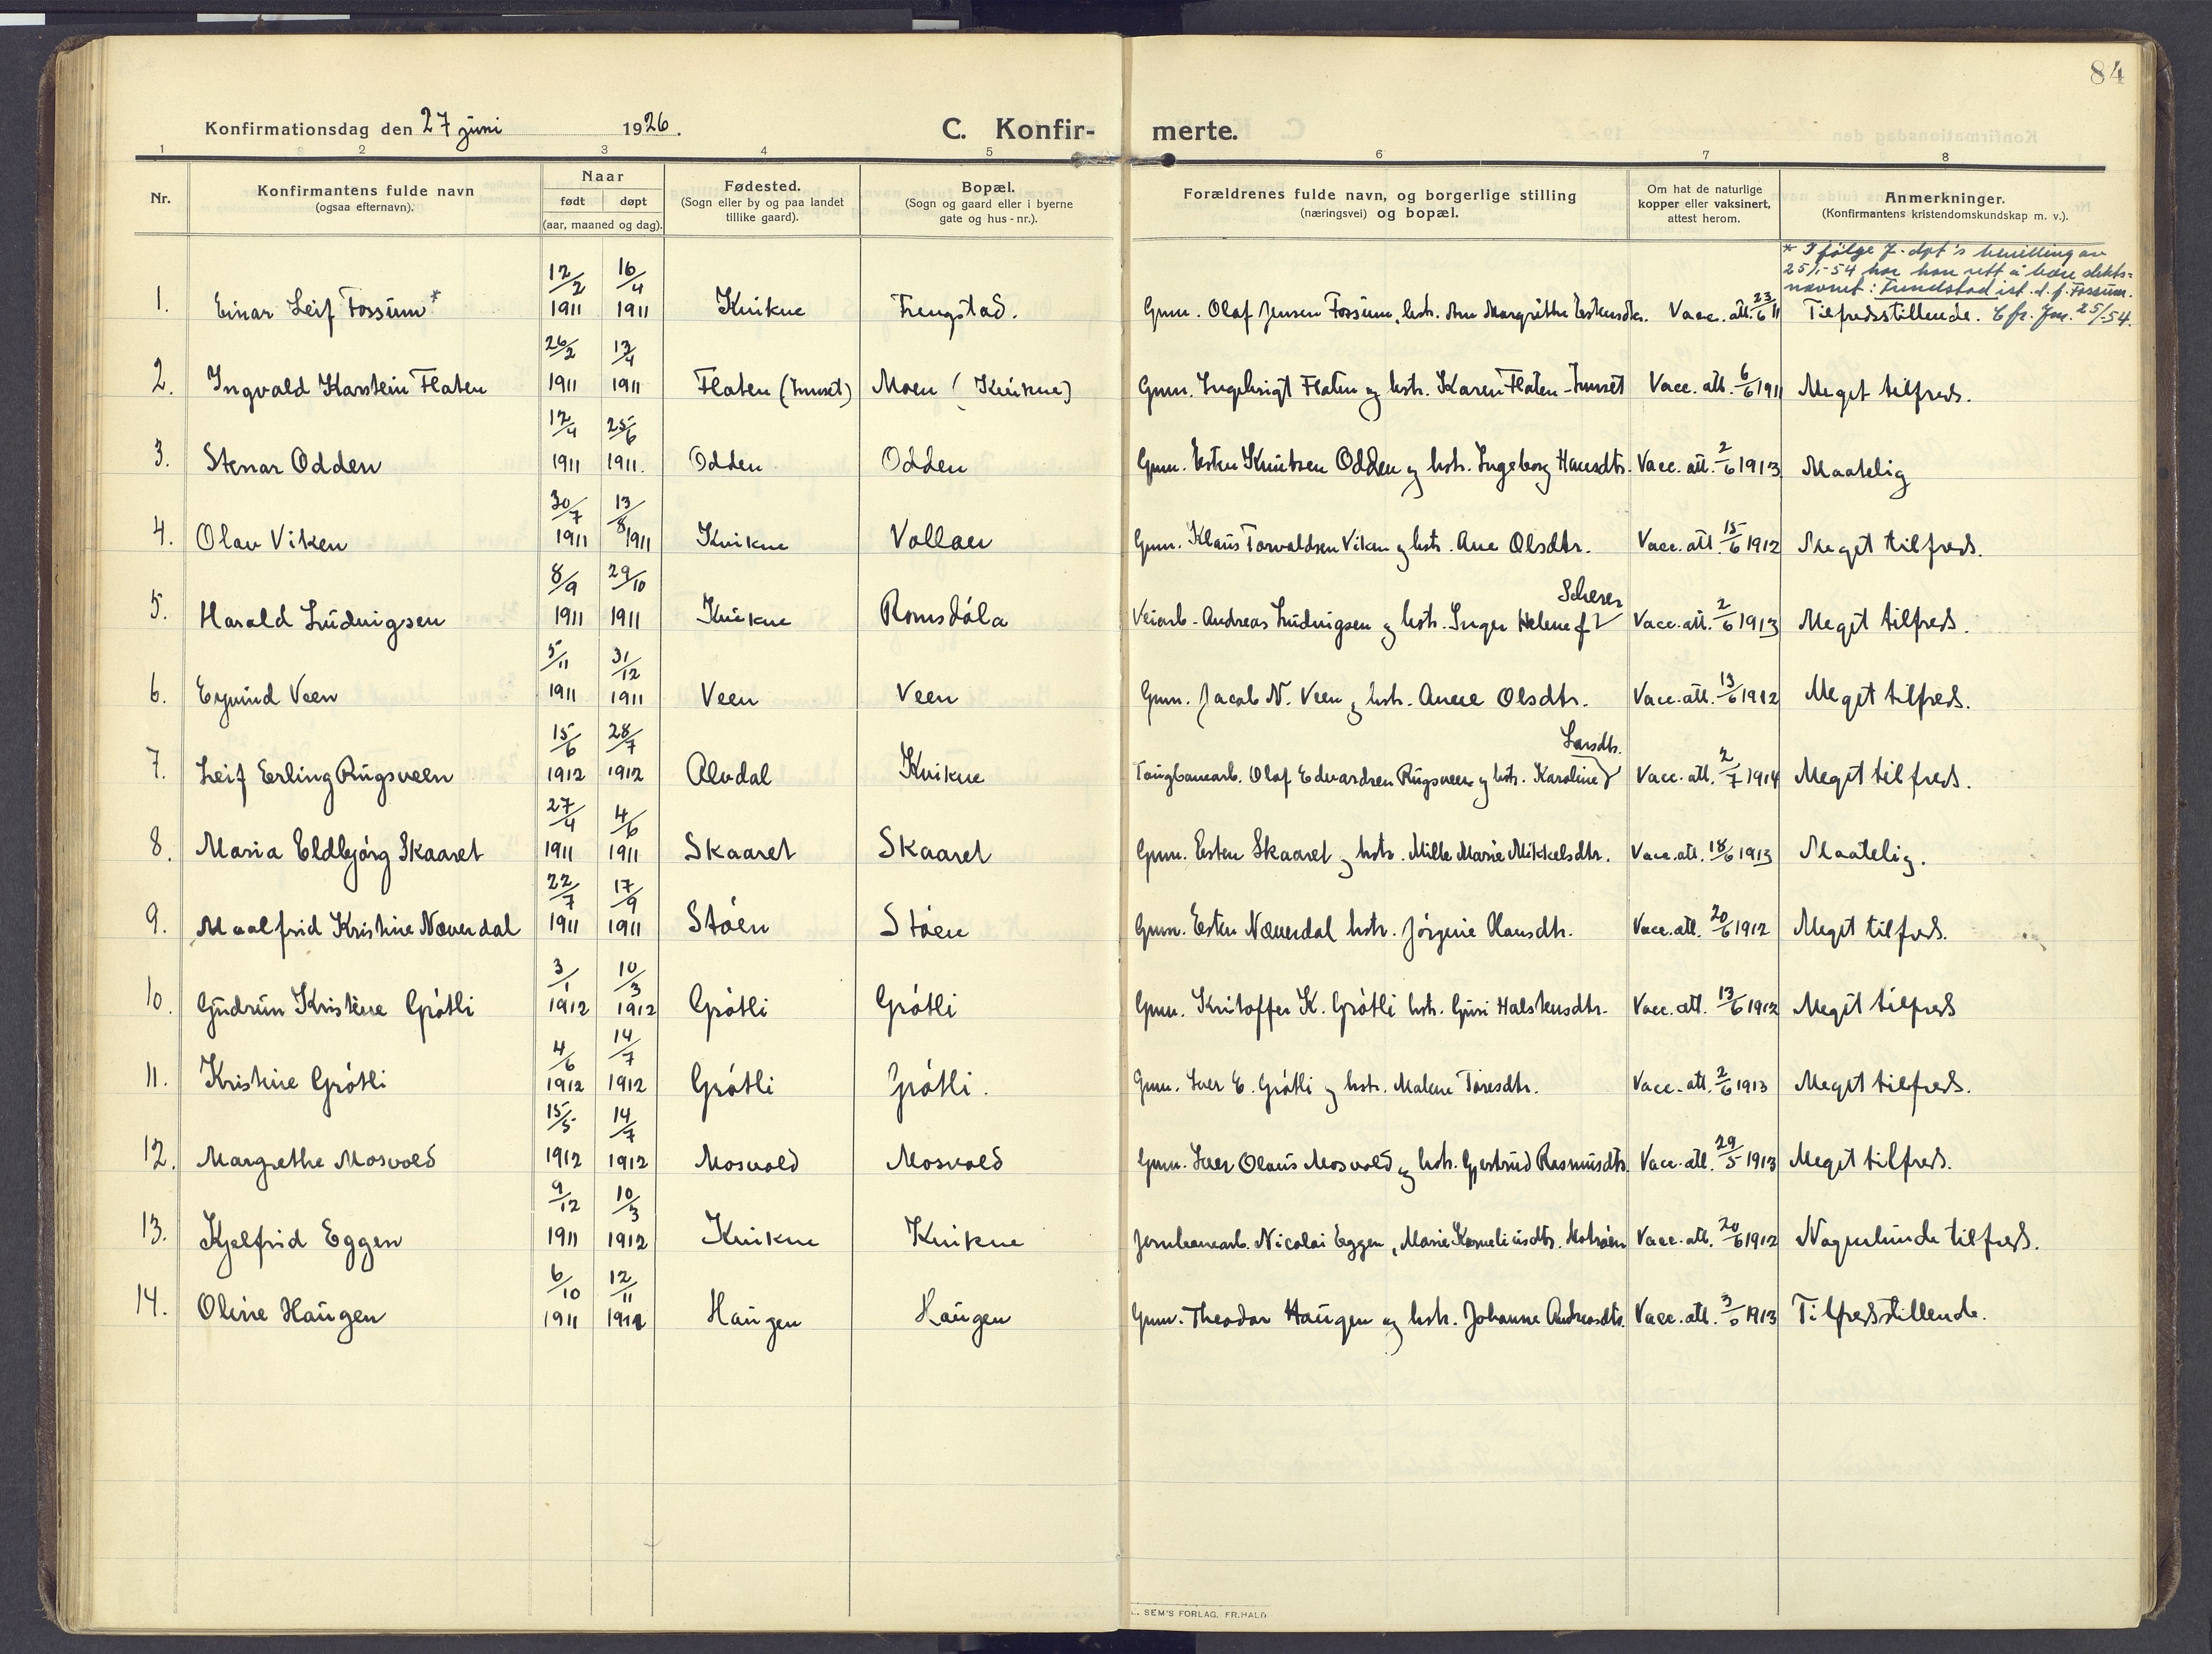 84
Konfirmationsdag den 27 juni 1926.
C. Konfir- merte.
1 2 3 4 5 6 7 8
Nr.
Konfirmantens fulde navn
(ogsaa efternavn).
Naar
født døpt
(aar, maaned og dag).
Fødested.
(Sogn eller by og paa landet
tillike gaard).
Bopæl.
(Sogn og gaard eller i byerne
gate og hus-nr.).
Forældrenes fulde navn, og borgerlige stilling
(næringsvei) og bopæl.
Om hat de naturlige
kopper eller vaksinert,
attest herom.
Anmerkninger.
(Konfirmantens kristendomskundskap m. v.).
* Ifølge J. dpt's bevilling av
25/1-54 har han rett å bære slekts-
navnet: Tundstad ist. d. f. Fossum.
1. Einar Leif Fossum* 12/2 1911 16/4 1911 Kvikne Frengstad. Gmn. Olaf Jensen Fossum, hstr. Ane Margrethe Estensdtr. Vacc. att. 23/6 11 Tilfredsstillende. Cfr. Jnr. 25/-54.
2. Ingvald Karstein Flaten 26/2 1911 13/4 1911 Flaten (Tunset) Moen (Kvikne) Gmn. Ingebrigt Flaten og hstr. Karen Flaten - Tunset Vacc. att. 6/6 1911 Meget tilfreds.
3. Stenar Odden 12/4 1911 25/6 1911. Odden Odden Gmn. Esten Knutsen Odden og hstr. Ingeborg Hansdtr. Vacc. att. 2/6 1913 Maatelig
4. Olav Viken 30/7 1911 13/8 1911 Kvikne Vollan Gmn. Klaus Torvaldsen Viken og hstr. Ane Olsdtr. Vacc. att. 15/6 1912 Meget tilfreds.
5. Harald Ludvigsen 8/9 1911 29/10 1911 Kvikne Romsdöla Veiarb. Andreas Ludvigsen og hstr. Inger Helene f. Scherer Vacc. att. 2/6 1913 Meget tilfreds.
6. Eyvind Veen 5/11 1911 31/12 1911 Veen Veen Gmn. Jacob N. Veen og hstr. Anne Olsdtr. Vacc. att. 13/6 1912 Meget tilfreds.
7. Leif Erling Rugsveen 15/6 1912 28/7 1912 Alvdal Kvikne Taugbanearb. Olaf Edvardsen Rugsveen og hstr. Karoline Larsdtr. Vacc. att. 2/7 1914 Meget tilfreds.
8. Maria Eldbjörg Skaaret 27/4 1911 4/6 1911 Skaaret Skaaret Gmn. Esten Skaaret og hstr. Mille Marie Mikkelsdtr. Vacc. att. 18/6 1913 Maatelig.
9. Maalfrid Kristine Næverdal 22/7 1911 17/9 1911 Stöen Stöen Gmn. Esten Næverdal hstr. Jörgine Hansdtr. Vacc. att. 20/6 1912 Meget tilfreds.
10. Gudrun Kristine Grötli 3/1 1912 10/3 1912 Grötli Grötli Gmn. Kristoffer K. Grötli hstr. Guri Halstensdtr. Vacc. att. 13/6 1912 Meget tilfreds
11. Kristine Grötli 4/6 1912 14/7 1912 Grötli Grötli. Gmn. Iver E. Grötli og hstr. Malene Toresdtr. Vacc. att. 2/6 1913 Meget tilfreds.
12. Margrethe Mosvold 15/5 1912 14/7 1912 Mosvold Mosvold Gmn. Iver Olaus Mosvold og hstr. Gjertrud Rasmusdtr. Vacc. att. 29/5 1913 Meget tilfreds.
13. Kjelfrid Eggen 9/12 1911 10/3 1912 Kvikne Kvikne Jernbanearb. Nicolai Eggen, Marie Korneliusdtr. Motröen Vacc. att. 20/6 1912 Nogenlunde tilfreds.
14. Oline Haugen 6/10 1911 12/11 1911 Haugen Haugen Gmn. Theodor Haugen og hstr. Johanne Andreasdtr. Vacc. att. 3/6 1913 Tilfredsstillende.
SEM'S FORLAG, FR.HALD